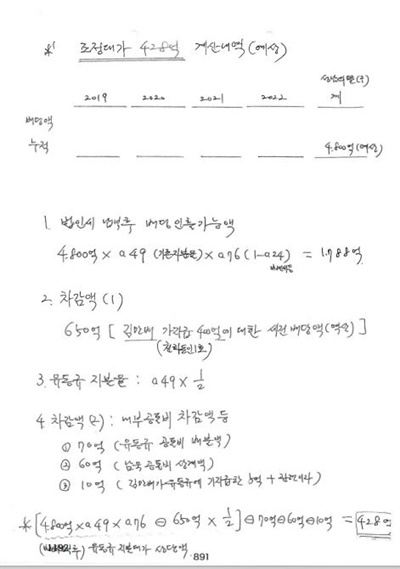 * 조정대가 428억 계산내역(예상)
2019 2020 2021 2022 계
배당액
누적 4,800억(예상)
1. 법인세 납부후 배당 인출가능액
4,800억 × 0.49 (기존지분율) × 0.76 (1-0.24) = 1,788억
2. 차감액 (1)
650억 [ 김만배 가각급 400억에 대한 세전 배당액(역산) ]
(천화동인1호)
3. 유동규 지분율 : 0.49 × 1/2
4. 차감액(2) : 내부공통비 차감액 등
① 70억 (유동규 공통비 배분액)
② 60억 (남욱 공통비 상계액)
③ 10억 (김만배가 유동규에 기각급한 5억 +
* [4,800억 × 0.49 × 0.76 ⊖ 650억 × 1/2] ⊖ 70억 ⊖ 60억 ⊖ 10억 = 428억
유동규 지분대가 상당액
891